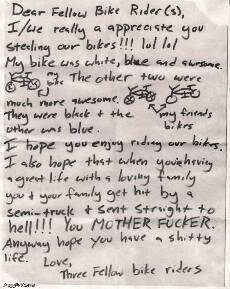 Dear Fellow Bike Rider(s),
I/we really a appreciate you
stealing our bikes!!! lol lol
My bike was white, blue and awesome.
my bike The other two were
much more awesome.
They were black & the my friends
other was blue. bikes
I hope you enjoy riding our bikes.
I also hope that when you're having
a great life with a loving family
you & your family get hit by a
semi-truck & sent straight to
hell!!! You MOTHER FUCKER.
Anyway hope you have a shitty
life. Love,
Three Fellow bike riders